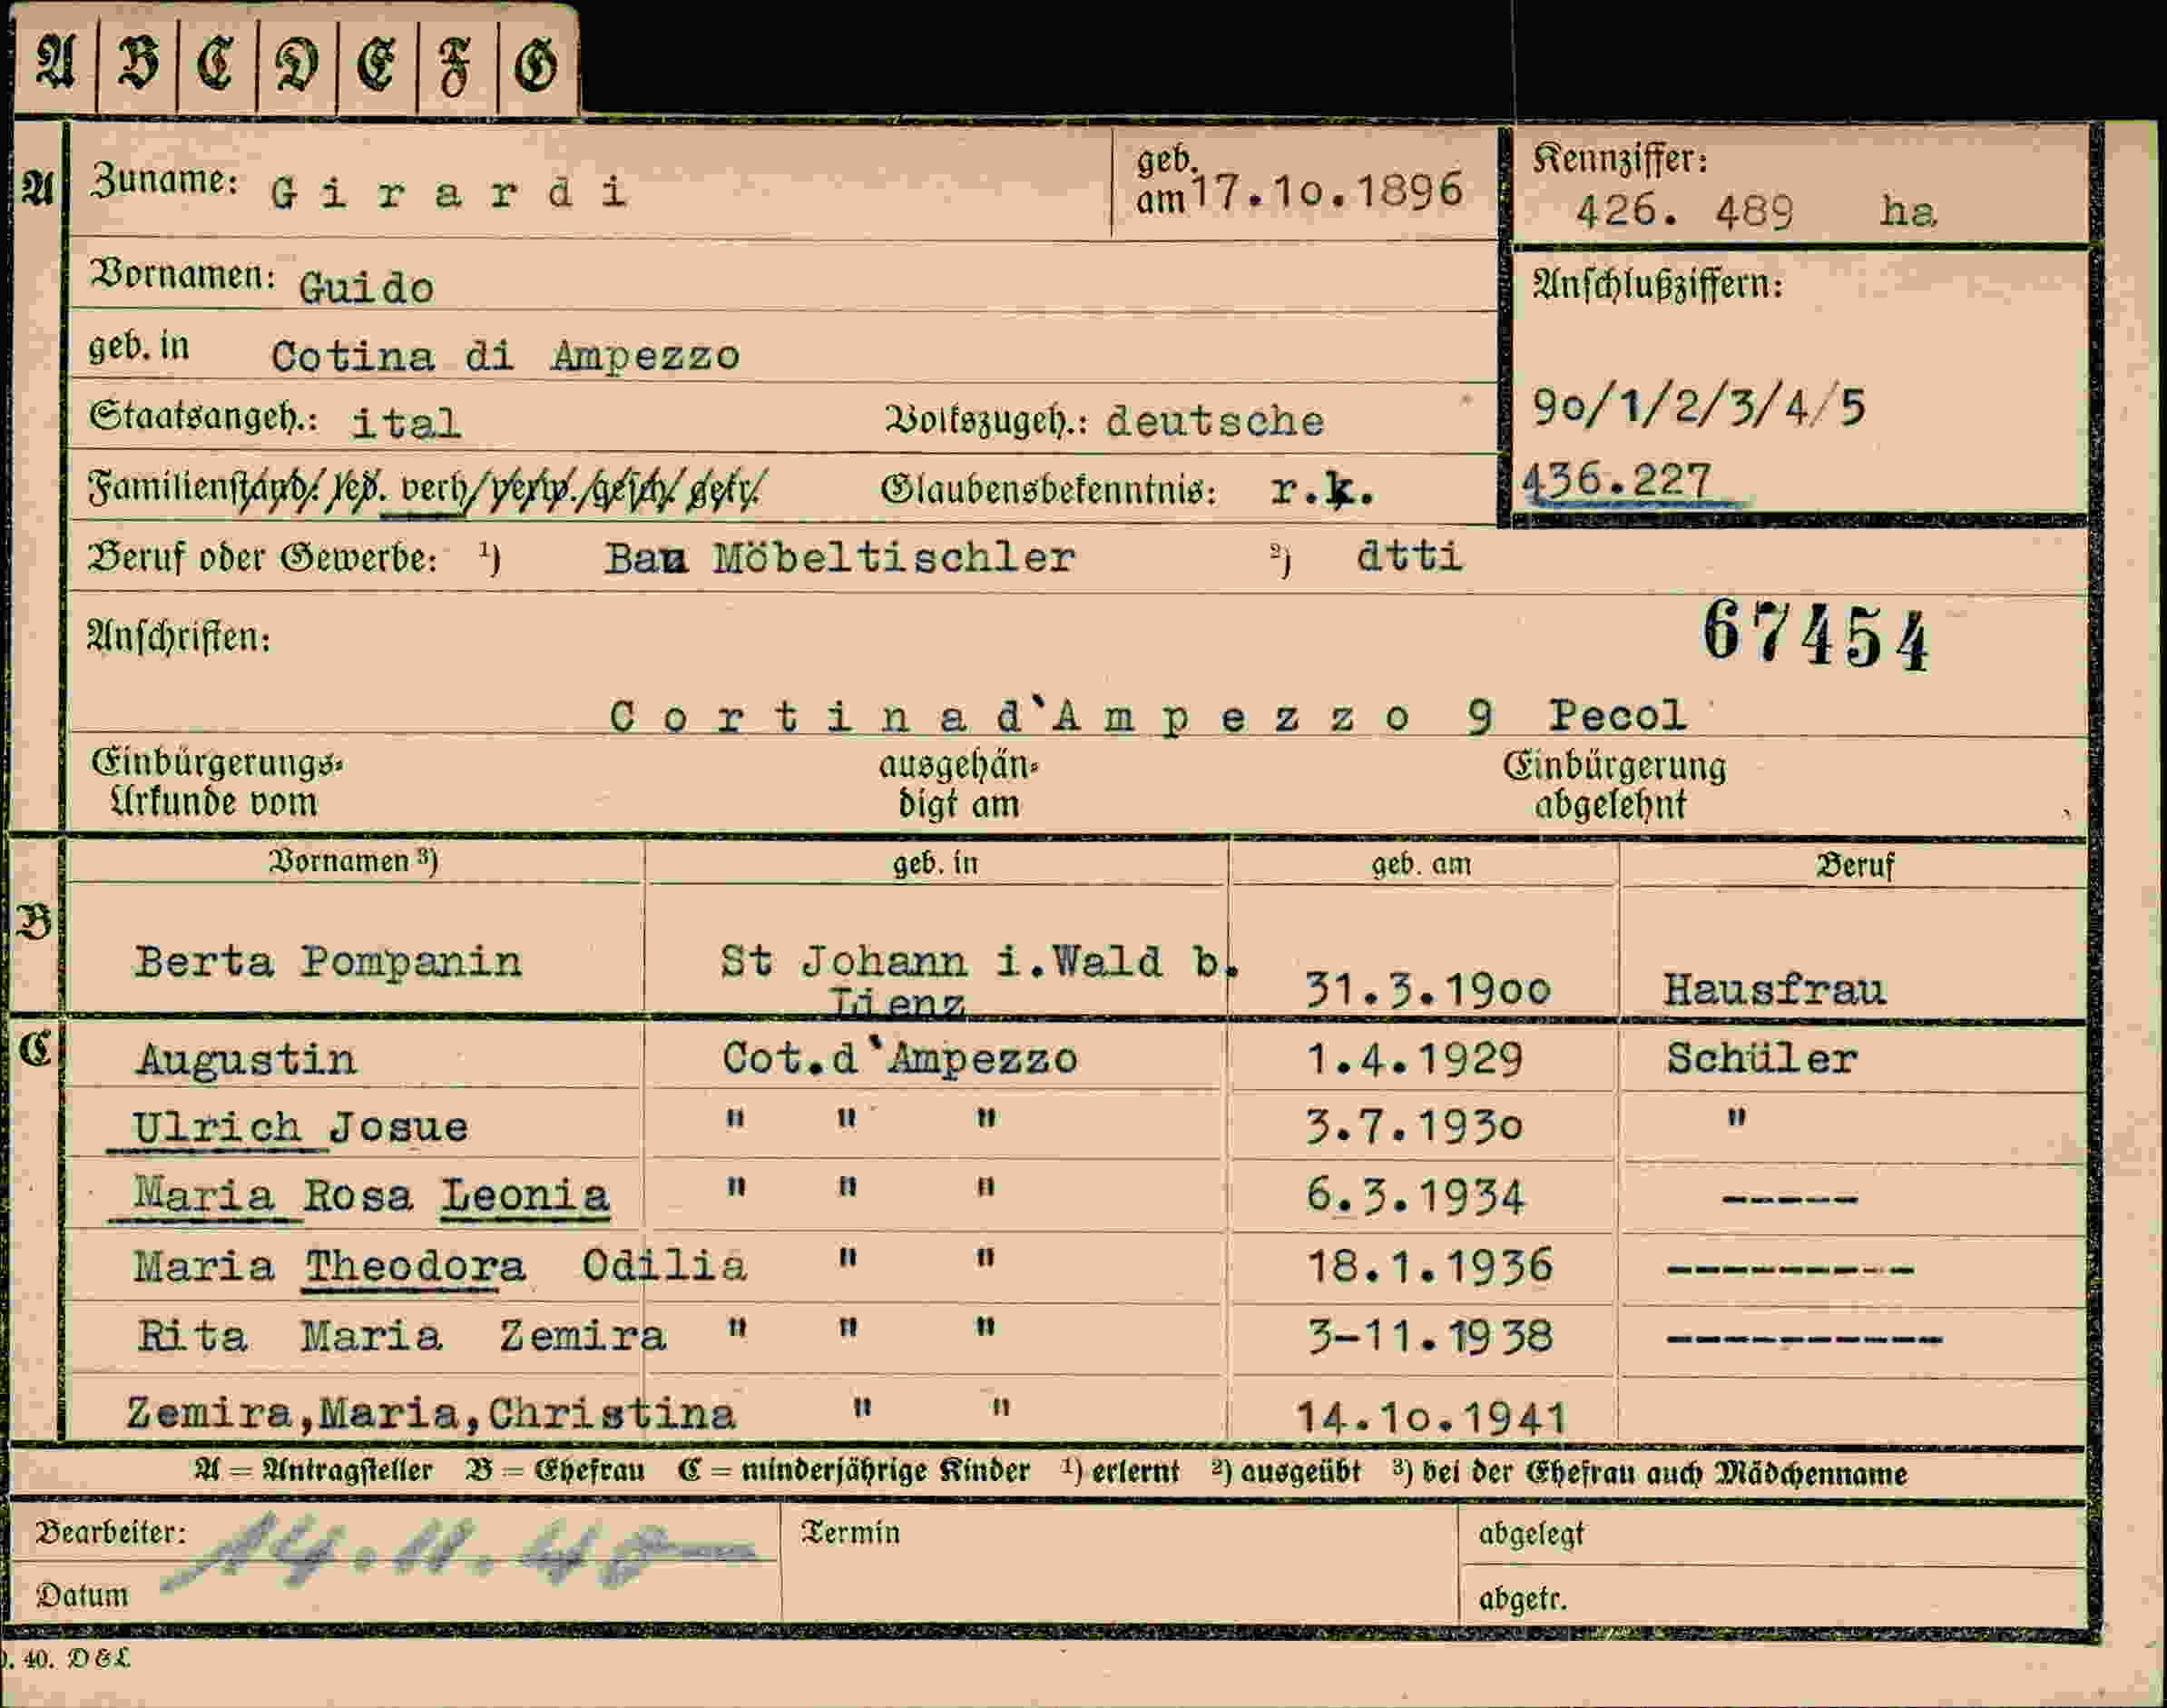 A B C D E F G
A Zuname: Girardi geb. am 17.10.1896 Kennziffer: 426. 489 ha
Vornamen: Guido Anschlußziffern:
geb. in Cotina di Ampezzo
Staatsangeh.: ital Volkszugeh.: deutsche 90/1/2/3/4/5
Familienstand/ led. verh/ verw./gesch/ getr. Glaubensbekenntnis: r.k. 436.227
Beruf oder Gewerbe: ¹) Bau Möbeltischler ²) dtti
Anschriften: 67454
Cortina d`Ampezzo 9 Pecol
Einbürgerungs- ausgehän- Einbürgerung
Urkunde vom digt am abgelehnt
Vornamen ³) geb. in geb. am Beruf
B Berta Pompanin St Johann i.Wald b. Lienz 31.3.1900 Hausfrau
C Augustin Cot.d`Ampezzo 1.4.1929 Schüler
Ulrich Josue " " " 3.7.1930 "
Maria Rosa Leonia " " " 6.3.1934 -----
Maria Theodora Odilia " " 18.1.1936 ---------
Rita Maria Zemira " " " 3-11.1938 ----------
Zemira,Maria,Christina " " 14.10.1941
A = Antragsteller B = Ehefrau C = minderjährige Kinder ¹) erlernt ²) ausgeübt ³) bei der Ehefrau auch Mädchenname
Bearbeiter: 14.11.40 Termin abgelegt
Datum abgetr.
. 40. D & L